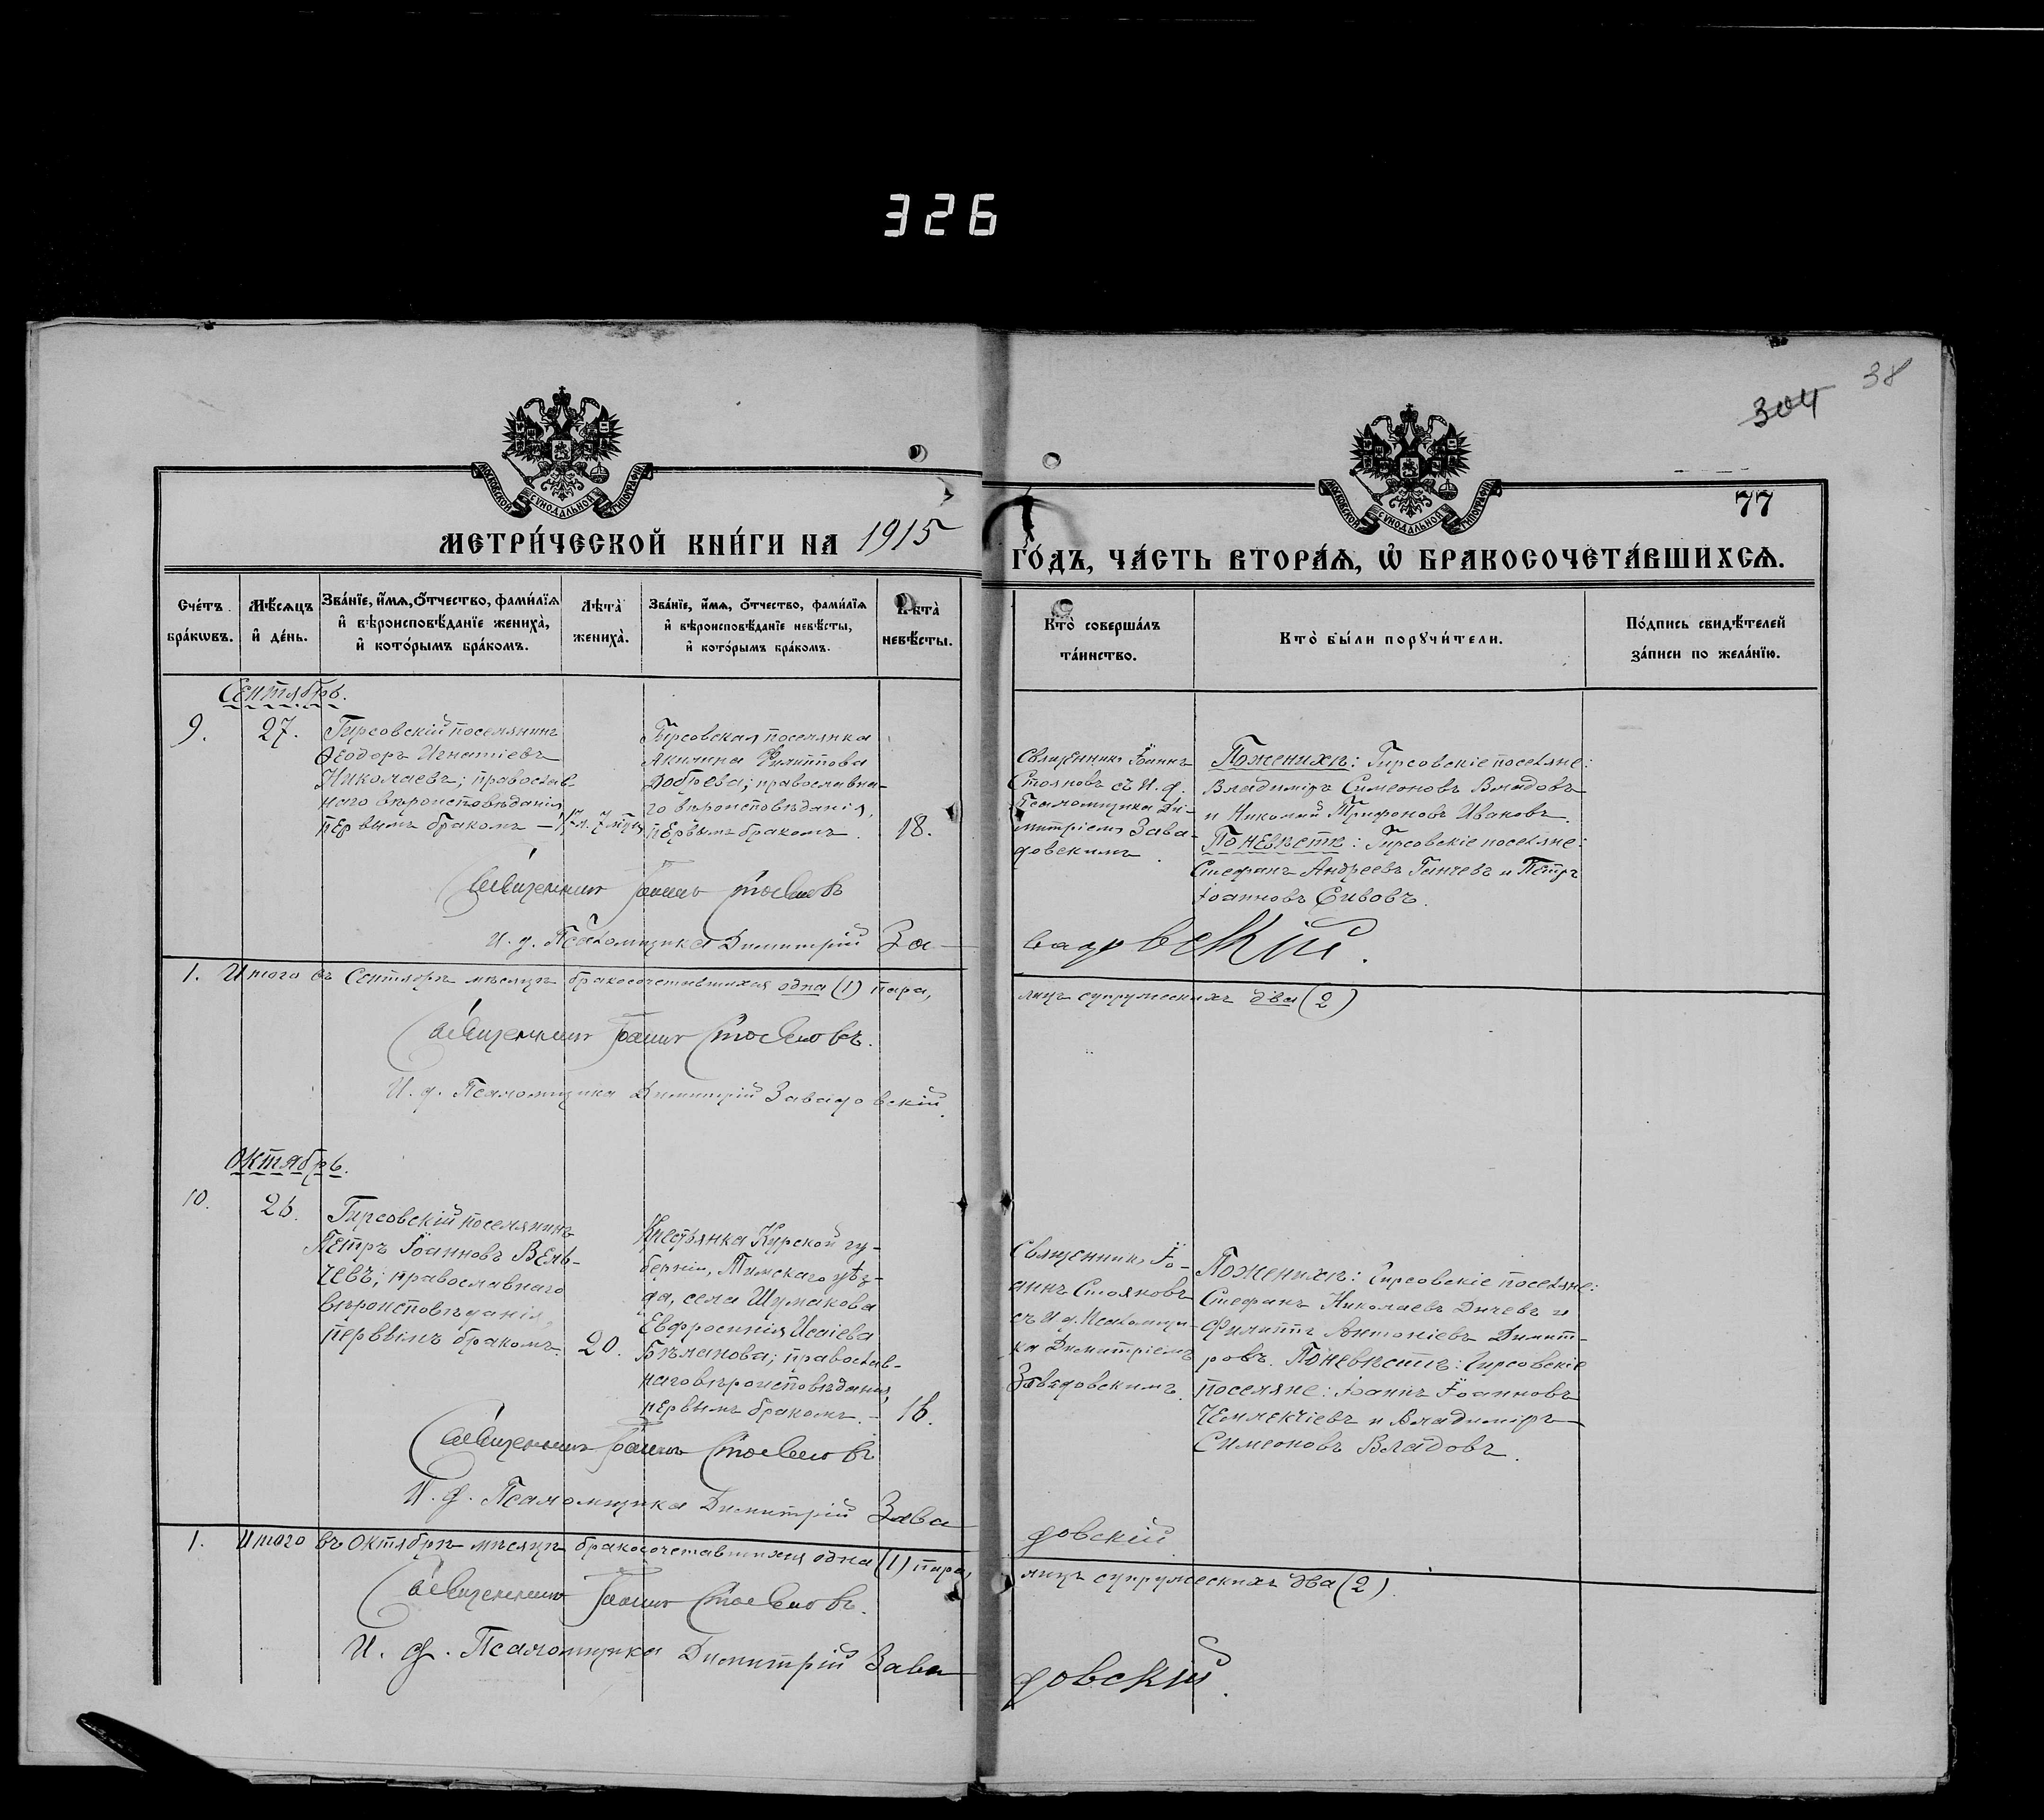 326
38
304
МОСКОВСКОЙ СѴНОДАЛЬНОЙ ТИПОГРАФІИ
МОСКОВСКОЙ СѴНОДАЛЬНОЙ ТИПОГРАФІИ
77
МЕТРИ́ЧЕСКОЙ КНИ́ГИ НА 1915
ГО́ДЪ, ЧА́СТЬ ВТОРА́Ѧ, Ѡ҆ БРАКОСОЧЕТА́ВШИХСѦ.
Сче́тъ
бра́кѡвъ.
Мѣ́сѧцъ
и҆ де́нь.
Зва́нїе, и҆́мѧ, ѻ҆́тчество, фами́лїѧ
и҆ вѣроисповѣ́данїе жениха̀,
и҆ кото́рымъ бра́комъ.
Лѣта̀
жениха̀.
Зва́нїе, и҆́мѧ, ѻ҆́тчество, фами́лїѧ
и҆ вѣроисповѣ́данїе невѣ́сты,
и҆ кото́рымъ бра́комъ.
Лѣта̀
невѣ́сты.
Кто̀ соверша́лъ
та́инство.
Кто̀ бы́ли порꙋчи́тели.
По́дпись свидѣ́телей
за́писи по жела́нїю.
Сентябрь.
9.
27.
Гирсовскій поселянинъ
Ѳеодоръ Игнатіевъ
Николаевъ; православ-
наго вѣроисповѣданія,
первымъ бракомъ —
Гирсовская поселянка
Акилина Филиппова
Добрева; православна-
го вѣроисповѣданія,
первымъ бракомъ.
18.
Священникъ Іоаннъ
Стояновъ съ И. д.
Псаломщика Ди-
митріемъ Зава-
довскимъ.
По женихѣ: Гирсовскіе поселяне:
Владиміръ Симеоновъ Владовъ
и Николай Трифоновъ Ивановъ.
По невѣстѣ: Гирсовскіе поселяне:
Стефанъ Андреевъ Ганчевъ и Петръ
Іоанновъ Сивовъ.
Священникъ Іоаннъ Стояновъ
И. д. Псаломщика Димитрій Завадовскій.
1. Итого въ Сентябрѣ мѣсяцѣ бракосочетавшихся одна (1) пара, лицъ супружескихъ два (2)
Священникъ Іоаннъ Стояновъ.
И. д. Псаломщика Димитрій Завадовскій.
Октябрь.
10.
26.
Гирсовскій поселянинъ
Петръ Іоанновъ Вель-
чевъ; православнаго
вѣроисповѣданія,
первымъ бракомъ.
20.
Крестьянка Курской гу-
берніи, Тимскаго уѣз-
да, села Шумакова
Евфросинія Исаіева
Бѣланова; православ-
наго вѣроисповѣданія,
первымъ бракомъ. —
16.
Священникъ Іо-
аннъ Стояновъ
съ И. д. Псаломщи-
ка Димитріемъ
Завадовскимъ.
По женихѣ: Гирсовскіе поселяне:
Стефанъ Николаевъ Дичевъ и
Филиппъ Антоніевъ Димит-
ровъ. По невѣстѣ: Гирсовскіе
поселяне: Іоаннъ Іоанновъ
Чемлекчіевъ и Владиміръ
Симеоновъ Владовъ.
Священникъ Іоаннъ Стояновъ
И. д. Псаломщика Димитрій Завадовскій
1. Итого въ Октябрѣ мѣсяцѣ бракосочетавшихся одна (1) пара, лицъ супружескихъ два (2).
Священникъ Іоаннъ Стояновъ.
И. д. Псаломщика Димитрій Завадовскій.